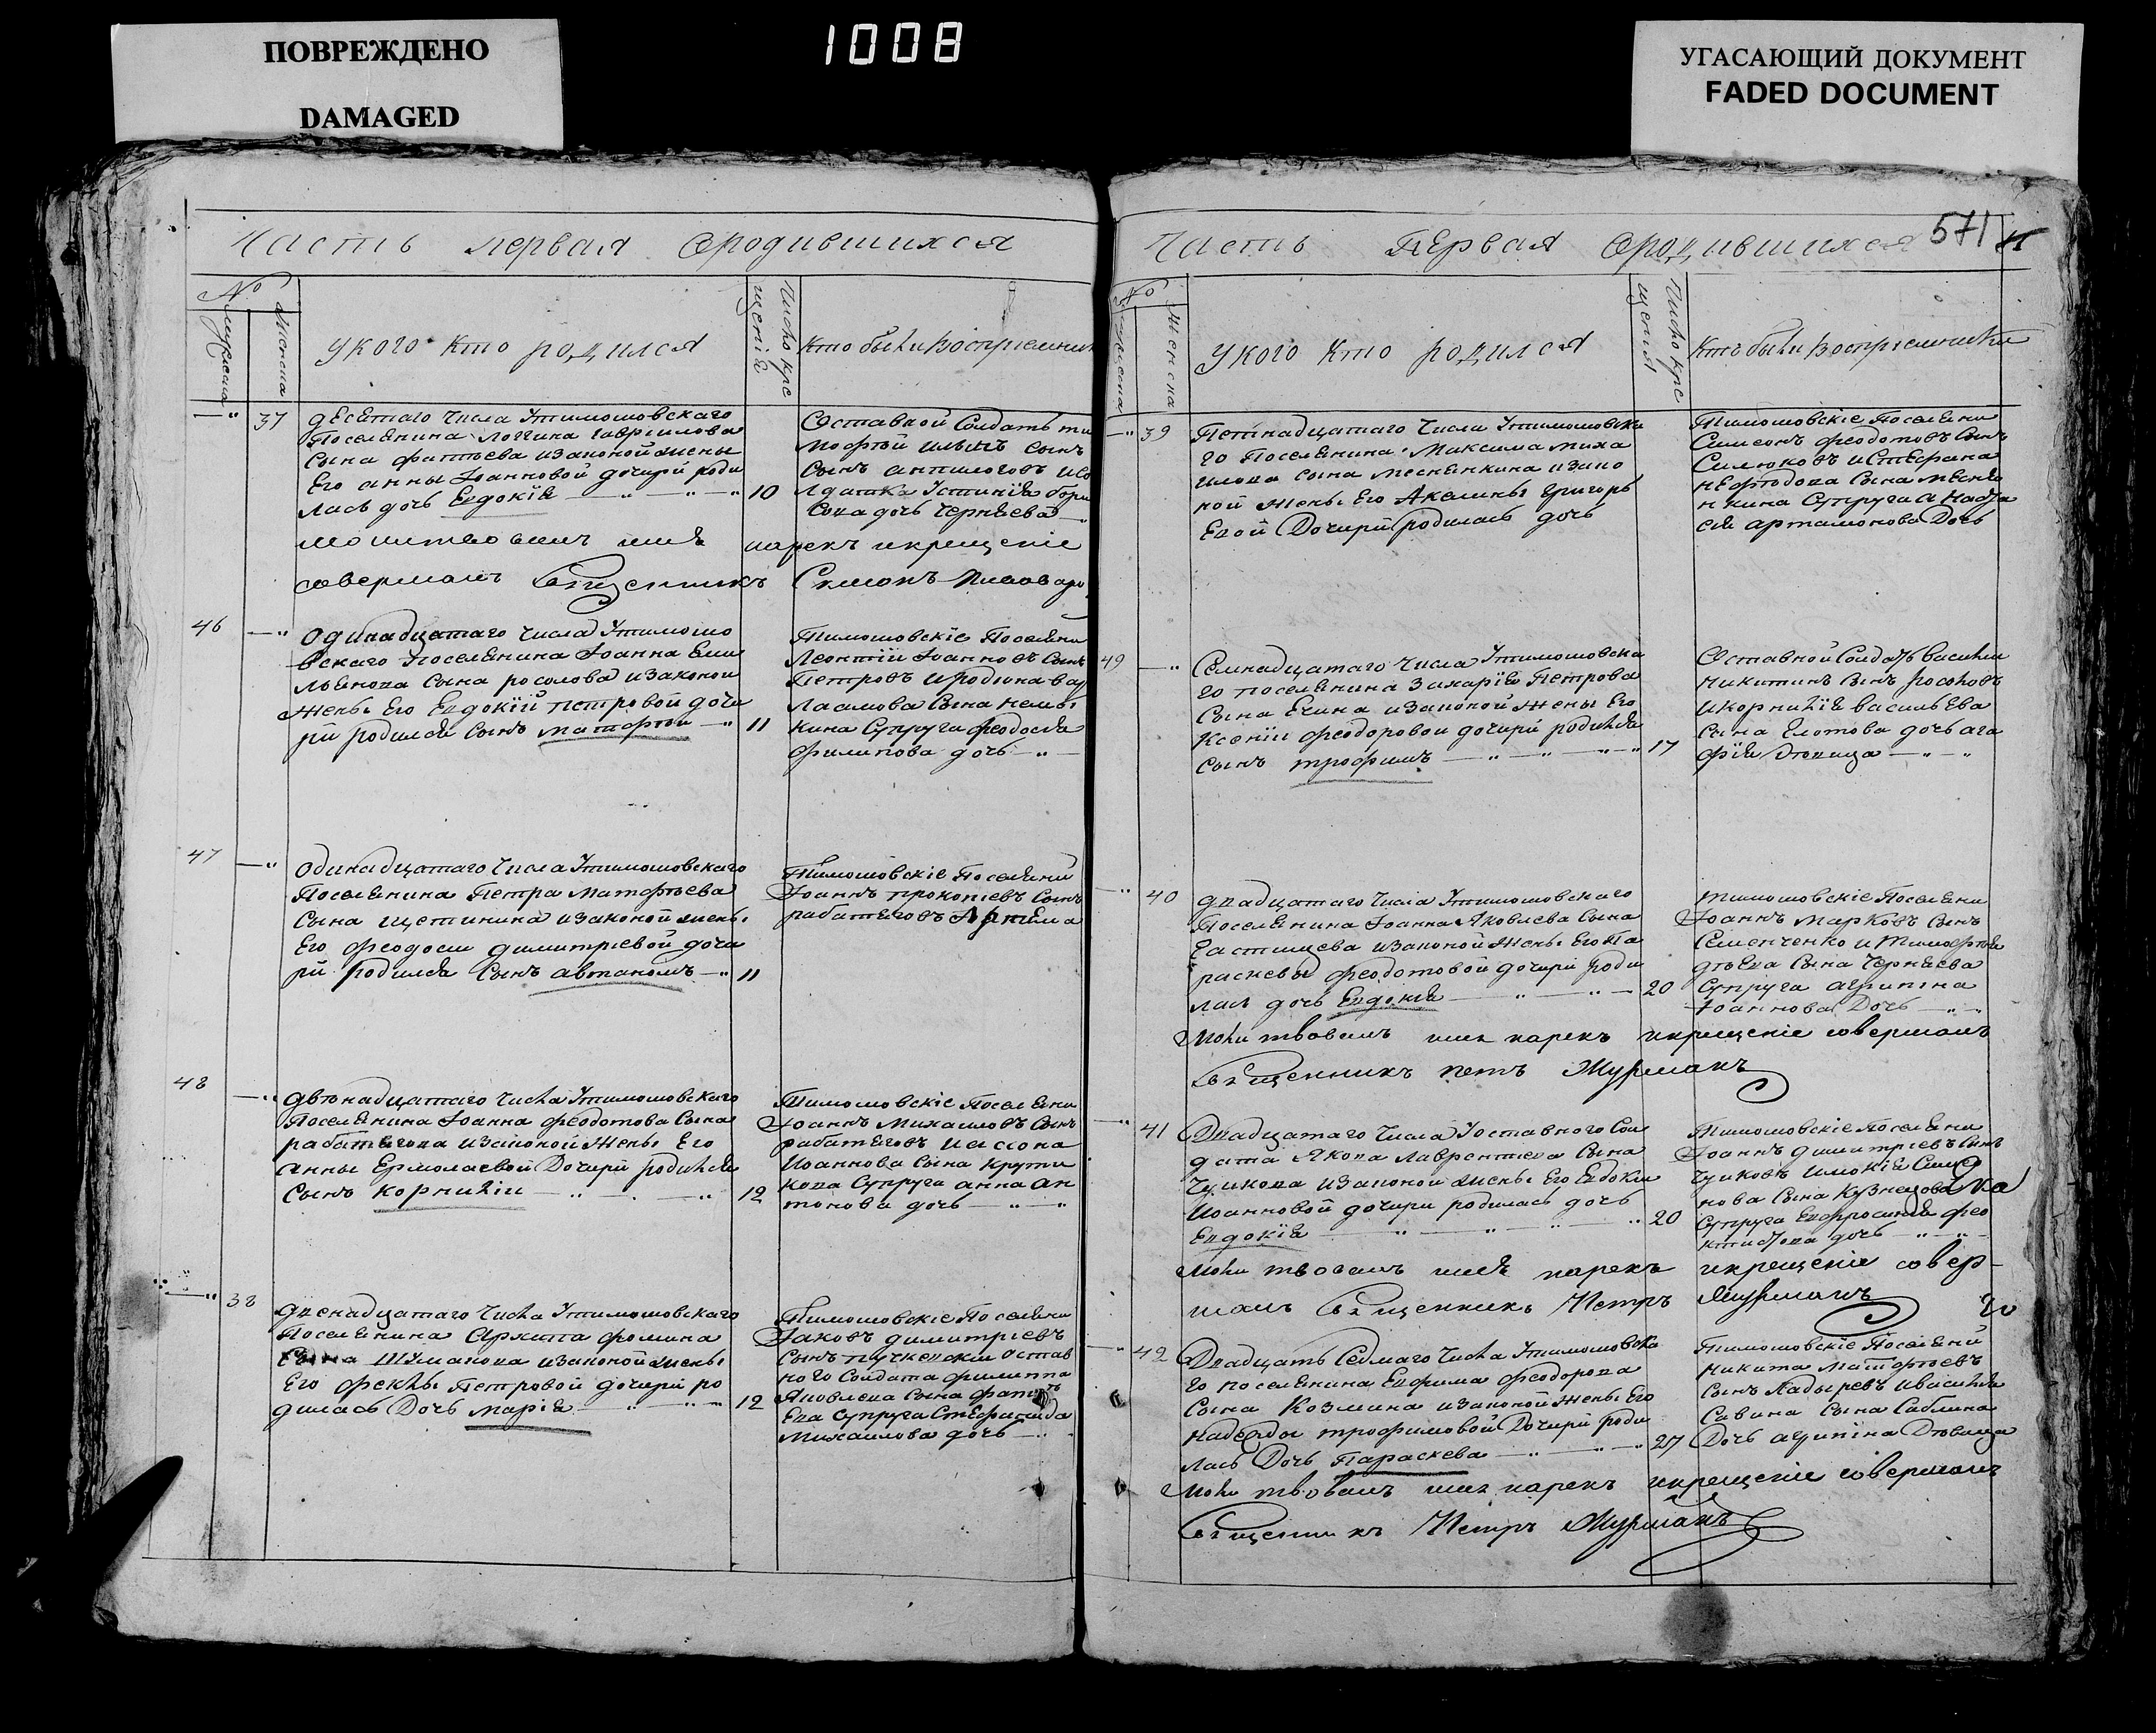 ПОВРЕЖДЕНО
DAMAGED
1008
УГАСАЮЩИЙ ДОКУМЕНТ
FADED DOCUMENT
Часть первая Ородившихся
№
мужеска
женска
Укого кто родился
Число кре
щенія
Кто были Воспріемник
37
десятаго Числа Утимошовскаго
Поселянина Логгина гавріилова
Сына фатѣева изаконой жены
Его анны Іоанновой дочери роди
лась дочь Евдокія
10
Оставной Солдатъ ти
мофѣй ильинъ сынъ
Сынъ антипоговъ исо
лдатка Устинія бори
сова дочь Черняева
молитвовалъ имя нарекъ икрещеніе
совершалъ Священникъ Симонъ
46
Одинадцатаго Числа Утимошо
вскаго Поселянина Іоанна Еми
льянова Сына росолова изаконои
Жены Его Евдокіи петровой доче
ри родился Сынъ матфеи
11
Тимошовскіе Поселяни
Леонтіи Іоанновъ Сынъ
Петровъ иродиона вар
ламова Сына
кина Супруга феодосія
филипова дочь
47
Одинадцатаго Числа Утимошовскаго
Поселянина Петра Матфѣева
Сына щетинина изаконой жены
Его феодосии димитріевой доче
ри родился Сынъ автаномъ
11
Тимошовскіе Поселяни
Іоаннъ прокопіевъ Сынъ
рабатяговъ
48
двѣнадцатаго Числа Утимошовскаго
Поселянина Іоанна феодотова Сына
рабатягова изаконой Жены Его
Анны Ермолаевой Дочери родился
Сынъ Корнилии
12
Тимошовскіе Поселяни
Іоаннъ Михаиловъ Сынъ
рабатяговъ иясона
Иоаннова Сына крути
кова Супруга анна ан
тонова дочь
38
двенадцатаго Числа Утимошовскаго
Поселянина Архипа фомина
Сына Шумакова изаконой жены
Его феклы Петровой дочери ро
дилась Дочь марія
12
Тимошовскіе Поселяни
Іаковъ димитріевъ
Сынъ остав
ного Солдата филиппа
Яковлева Сына фатѣ
Ева Супруга Стефанида
Михаилова дочь
Часть Первая Ородившихся
571
№
мужеска
Женска
Укого Кто родился
Число кре
щенія
Кто были Воспріемники
39
Петнадцатаго Числа Утимошовска
го Поселянина Максима миха
илова сына меснянкина изако
ной жены Его Акелины григорь
Евой Дочери родилась дочь
Тимошовскіе Поселяни
Симеонъ феодотовъ Сынъ
Силюковъ иСтефана
нефодова Сына месня
нкина Супруга Анаста
сія артамонова Дочь
49
Семнадцатаго Числа Утимошовска
го поселянина Захарія Петрова
Сына Ечина изаконой Жены Его
Ксеніи феодоровои дочери родился
Сынъ трофимъ
17
Оставной Солдатъ василии
никитинъ Сынъ росоловъ
икорнилія васильева
Сына Елотова дочь ага
фія Девица
40
двадцатаго Числа Утимошовскаго
Поселянина Іоанна Яковлева Сына
Евстищева изаконой Жены Его Па
раскевы феодотовой дочери роди
лась дочь Евдокія
20
Тимошовскіе Поселяни
Іоаннъ Марковъ Сынъ
Семенченко итимофея
Сына Черняева
Супруга агрипина
Іоаннова Дочь
Молитвовалъ имя нарекъ икрещеніе совершалъ
Священникъ петръ Журманъ
41
Двадцатаго Числа Уоставного Сол
дата Якова Лаврентиева Сына
Чуикова изаконой Жены Его Евдокии
Иоанновой дочери родилась дочь
Евдокія
20
Тимошовскіе Поселяни
Іоаннъ димитріевъ Сынъ
Чуиковъ
нова Сына Кузнецова
Супруга Евфросинія фео
ктистова дочь
Молитвовалъ имя нарекъ икрещеніе совер-
шалъ Священникъ Петръ Журманъ
42
Двадцать Седмаго Числа Утимошовска
го поселянина Евфима феодорова
Сына Козмина изаконой Жены Его
Надежды трофимовой Дочери роди
лась Дочь Параскева
27
Тимошовскіе Поселяни
никита матфѣевъ
сынъ Ладыревъ ивасилія
Савина Сына Саблина
Дочь агрипина Девица
Молитвовалъ имя нарекъ икрещеніе совершалъ
Священникъ Петръ Журманъ